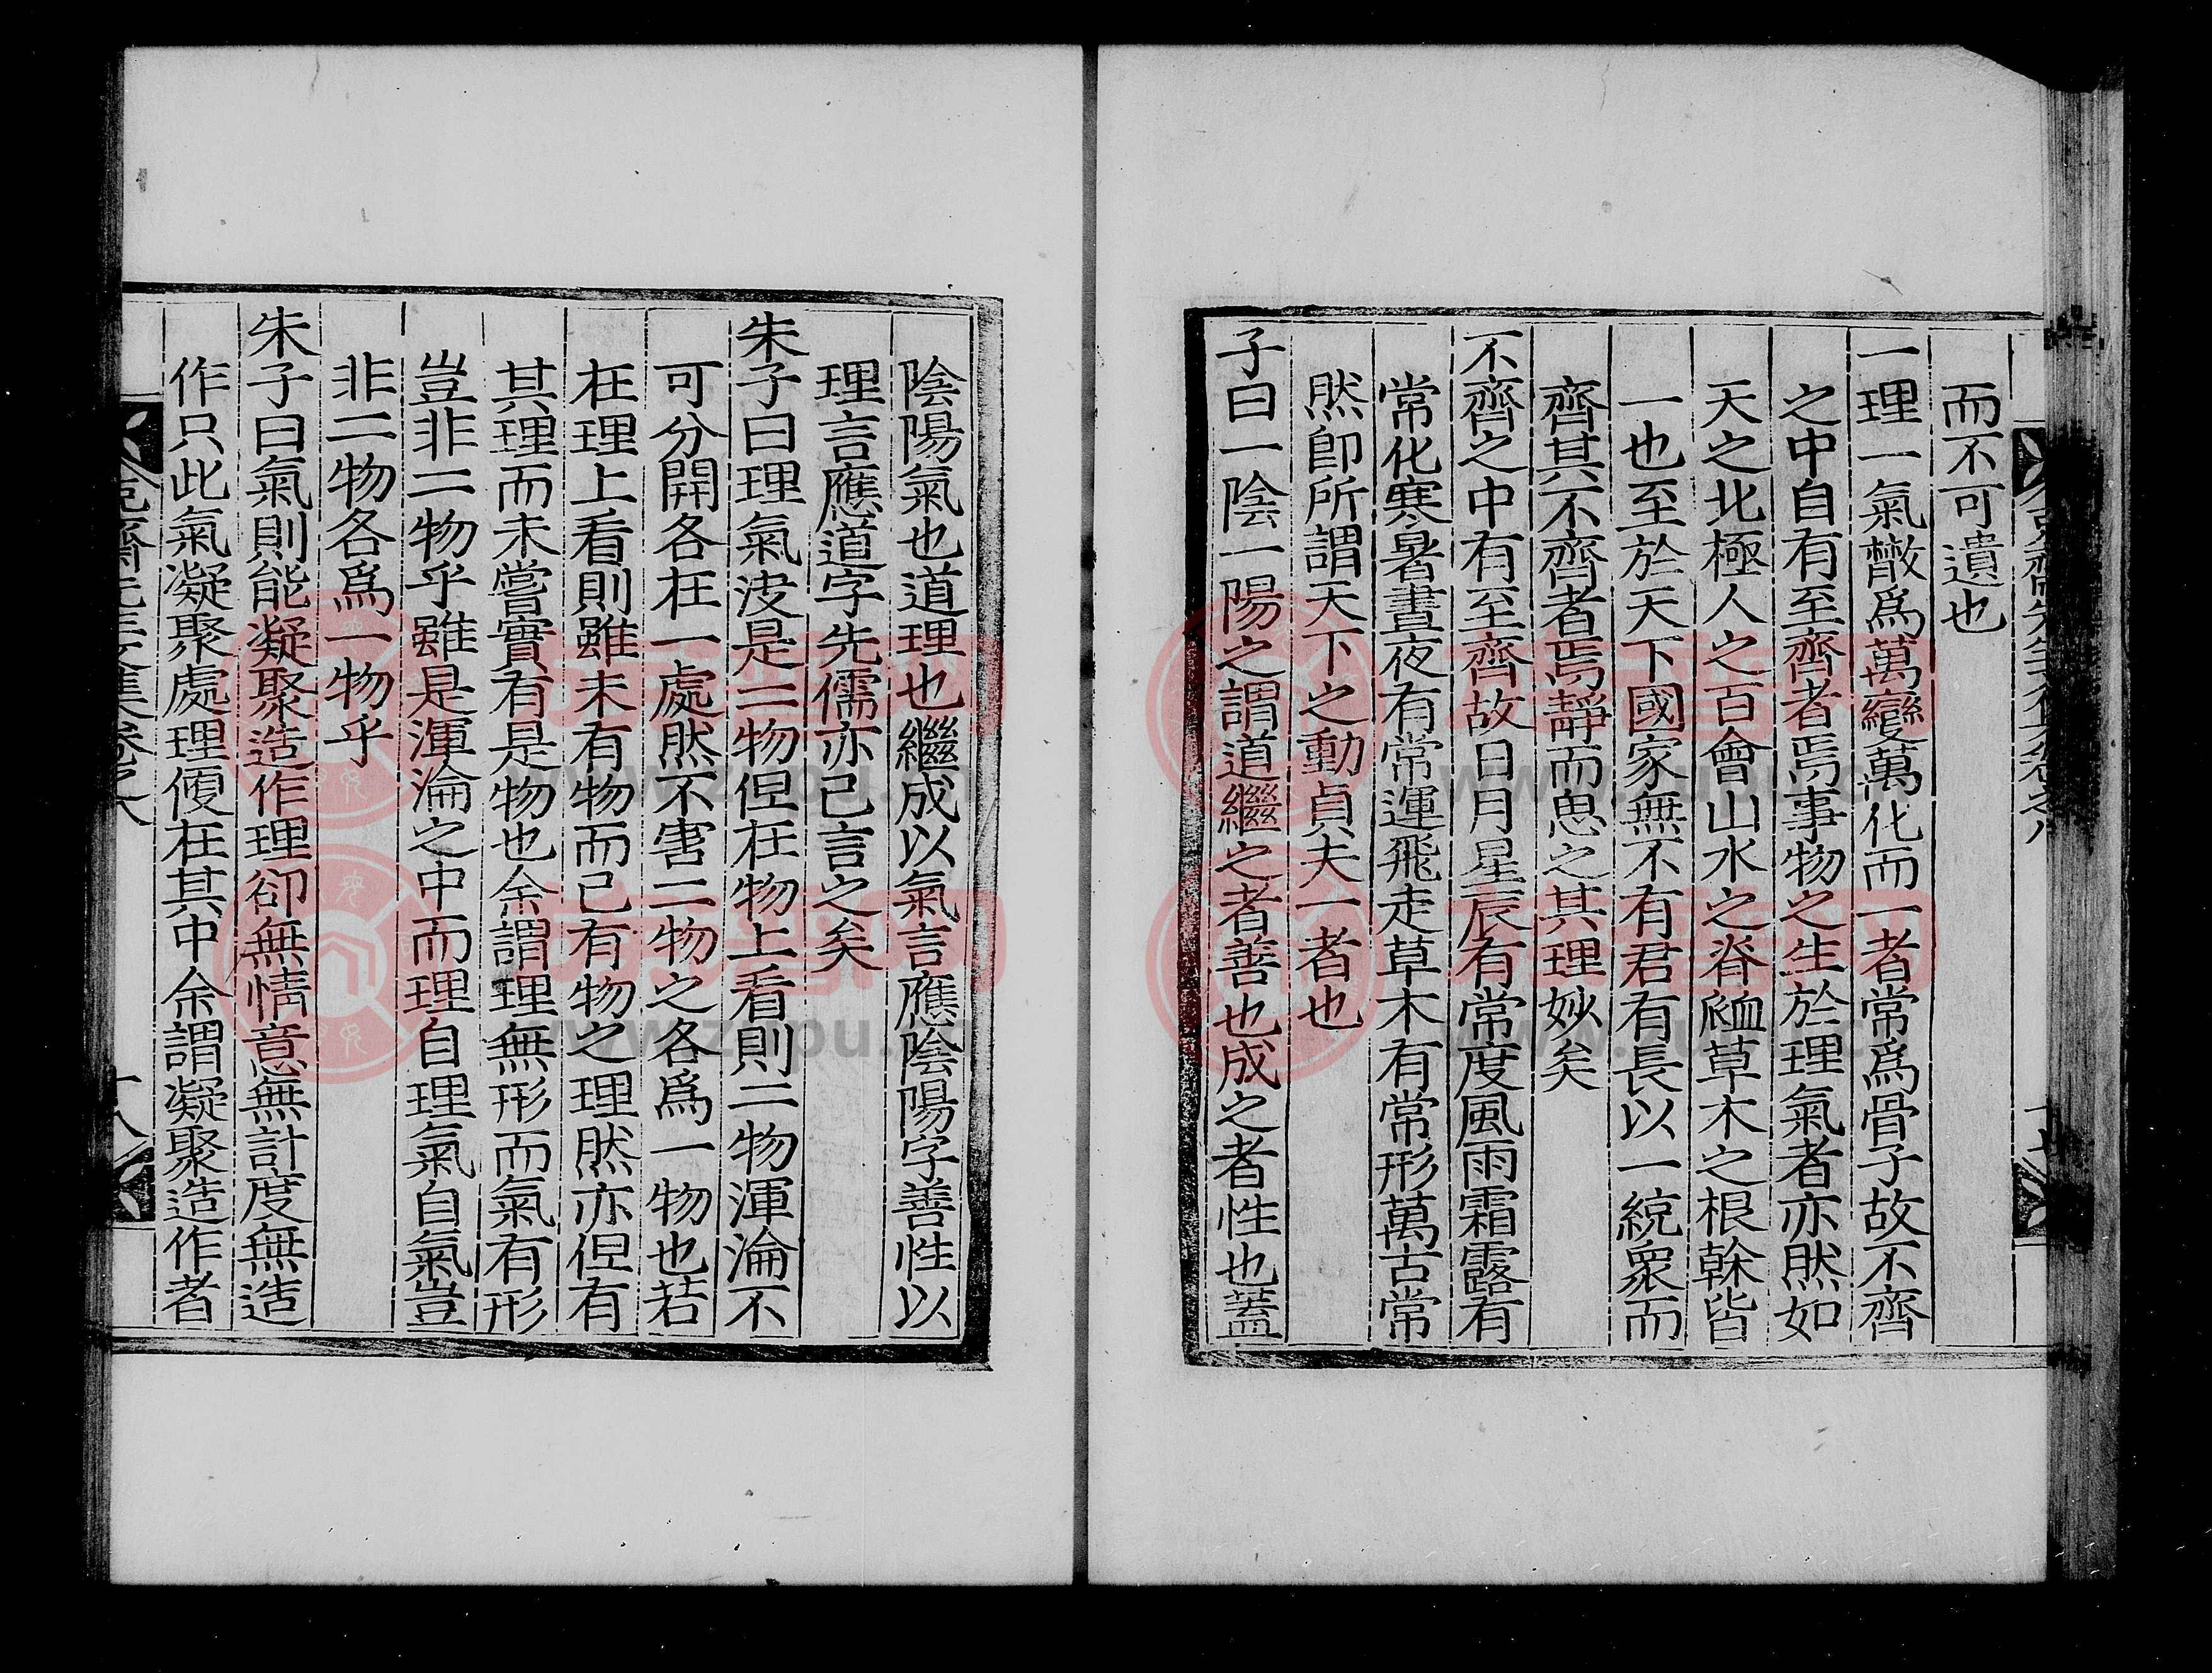 而不可遺也
一理一氣散爲萬變萬化而一者常爲骨子故不齊
之中自有至齊者焉事物之生於理氣者亦然如
天之北極人之百會山水之脊䘐草木之根榦皆
一也至於天下國家無不有君有長以一統衆而
齊其不齊者焉靜而思之其理妙矣
不齊之中有至齊故日月星辰有常度風雨霜露有
常化寒暑晝夜有常運飛走草木有常形萬古常
然卽所謂天下之動貞夫一者也
子曰一陰一陽之謂道繼之者善也成之者性也蓋
陰陽氣也道理也繼成以氣言應陰陽字善性以
理言應道字先儒亦已言之矣
朱子曰理氣决是二物但在物上看則二物渾淪不
可分開各在一處然不害二物之各爲一物也若
在理上看則雖未有物而已有物之理然亦但有
其理而未嘗實有是物也余謂理無形而氣有形
豈非二物乎雖是渾淪之中而理自理氣自氣豈
非二物各爲一物乎
朱子曰氣則能凝聚造作理卻無情意無計度無造
作只此氣凝聚處理便在其中余謂凝聚造作者
十八